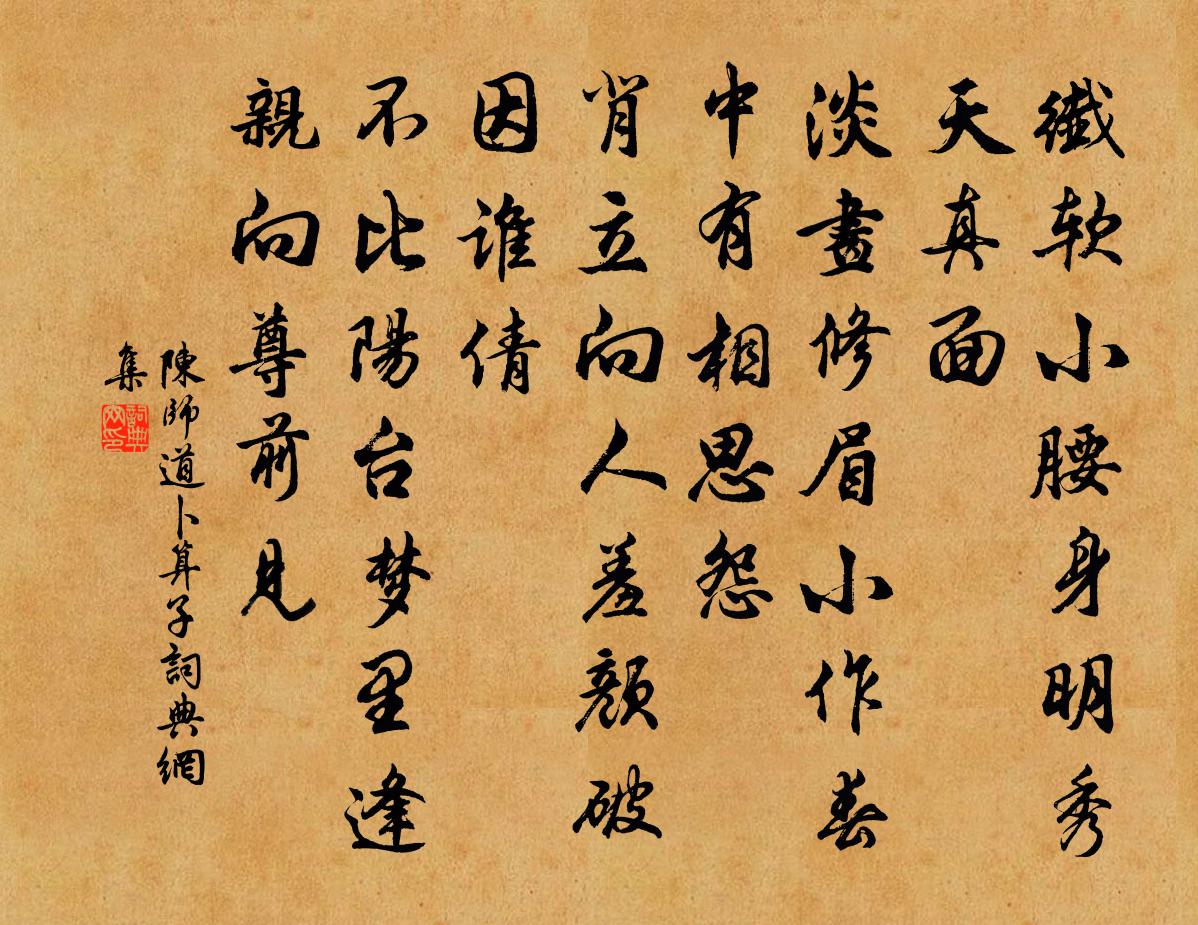 纖软小腰身明秀
天真面
淡畫修眉小作春
中有相思怨
背立向人羞顔破
因谁倩
不比陽台梦里逢
親向尊前見
陳師道卜算子詞典網
集
詞典
网印